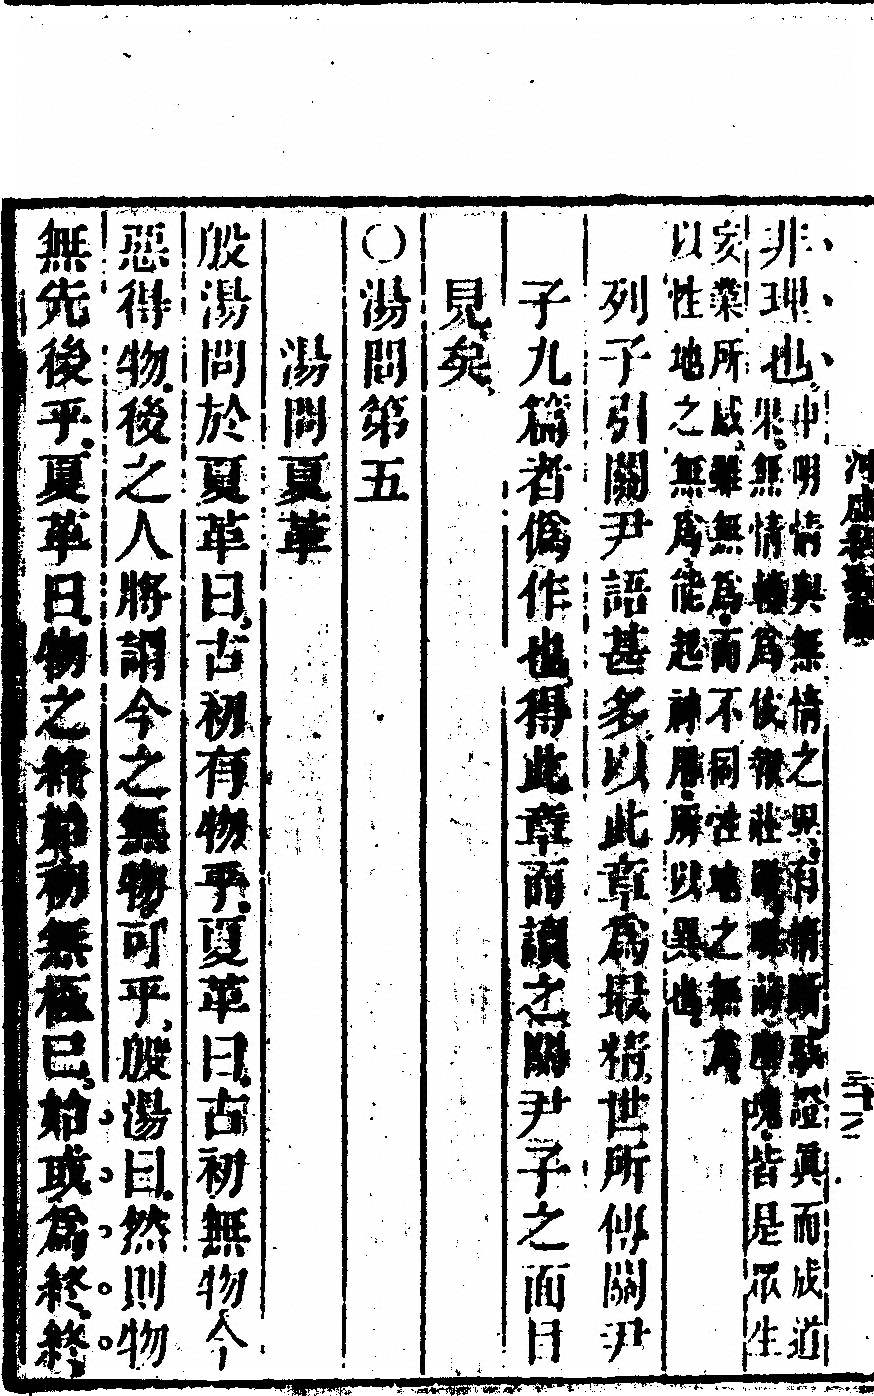 非理也
申明情與無情之界有情斷妄證眞而成道
果無情槁爲
皆是眾生
妄業所感雖無爲而不同性地之無爲
以性地之無爲能起神用所以異也
列子引關尹語甚多以此章爲最精世所傳關尹
子九篇者僞作也得此章而讀之關尹子之面目
見矣
○湯問第五
湯問夏革
殷湯問於夏革曰古初有物乎夏革曰古初無物今
惡得物後之人將謂今之無物可乎殷湯曰然則物
無先後乎夏革曰物之終始初無極已始或爲終終